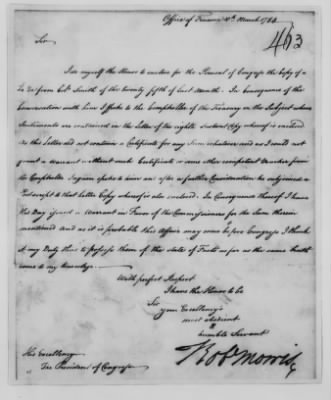 Office of Finance 10th March 1784
463
Sir
I do myself the Honor to enclose for the Perusal of Congress the Copy of a
Letter from Colo. Smith of the twenty fifth of last Month. In Consequence of the
Conversation with him I spoke to the Comptroller of the Treasury on the Subject whose
Sentiments are contained in the Letter of the eighth Instant Copy whereof is enclosed
As this Letter did not contain a Certificate for any Sum whatever and as I could not
grant a Warrant without such Certificate or some other competent Voucher from
the Comptroller I again spoke to him and after a further Consideration he subjoined a
Postscript to that Letter Copy whereof is also enclosed. In Consequence thereof I have
this Day issued a Warrant in Favor of the Commissioners for the Sum therein
mentioned And as it is probable this Affair may come before Congress I think
it my Duty thus to possess them of the state of Facts as far as the same hath
come to my knowledge.
With perfect Respect
I have the Honor to be
Sir
your Excellency's
most obedient
&
humble Servant
Robt Morris
His Excellency
The President of Congress